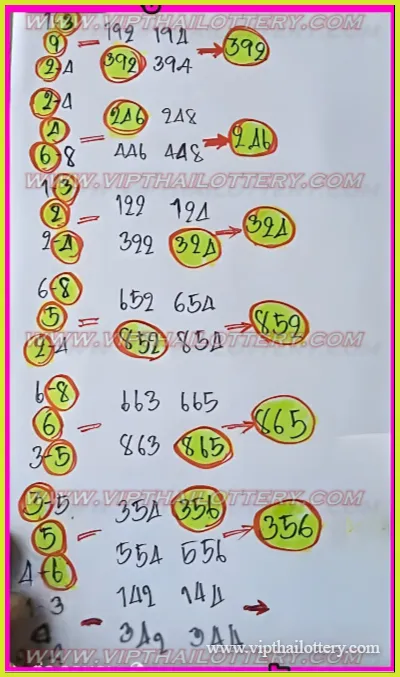 1-3
9 = 192 194 → 392
2-4 392 394
2-4
4 = 246 248 → 246
6-8 446 448
WWW.VIPTHAILOTTERY.COM
1-3
2 = 122 124 → 324
2-4 322 324
6-8
5 = 652 654 → 852
2-4 852 854
WWW.VIPTHAILOTTERY.COM
6-8
6 = 663 665 → 865
3-5 863 865
WWW.VIPTHAILOTTERY.COM
3-5
5 - 354 356 → 356
4-6 554 556
1-3 142 144 →
4 - 342 344
www.vipthailottery.com
WWW.VIPTHAILOTTERY.COM